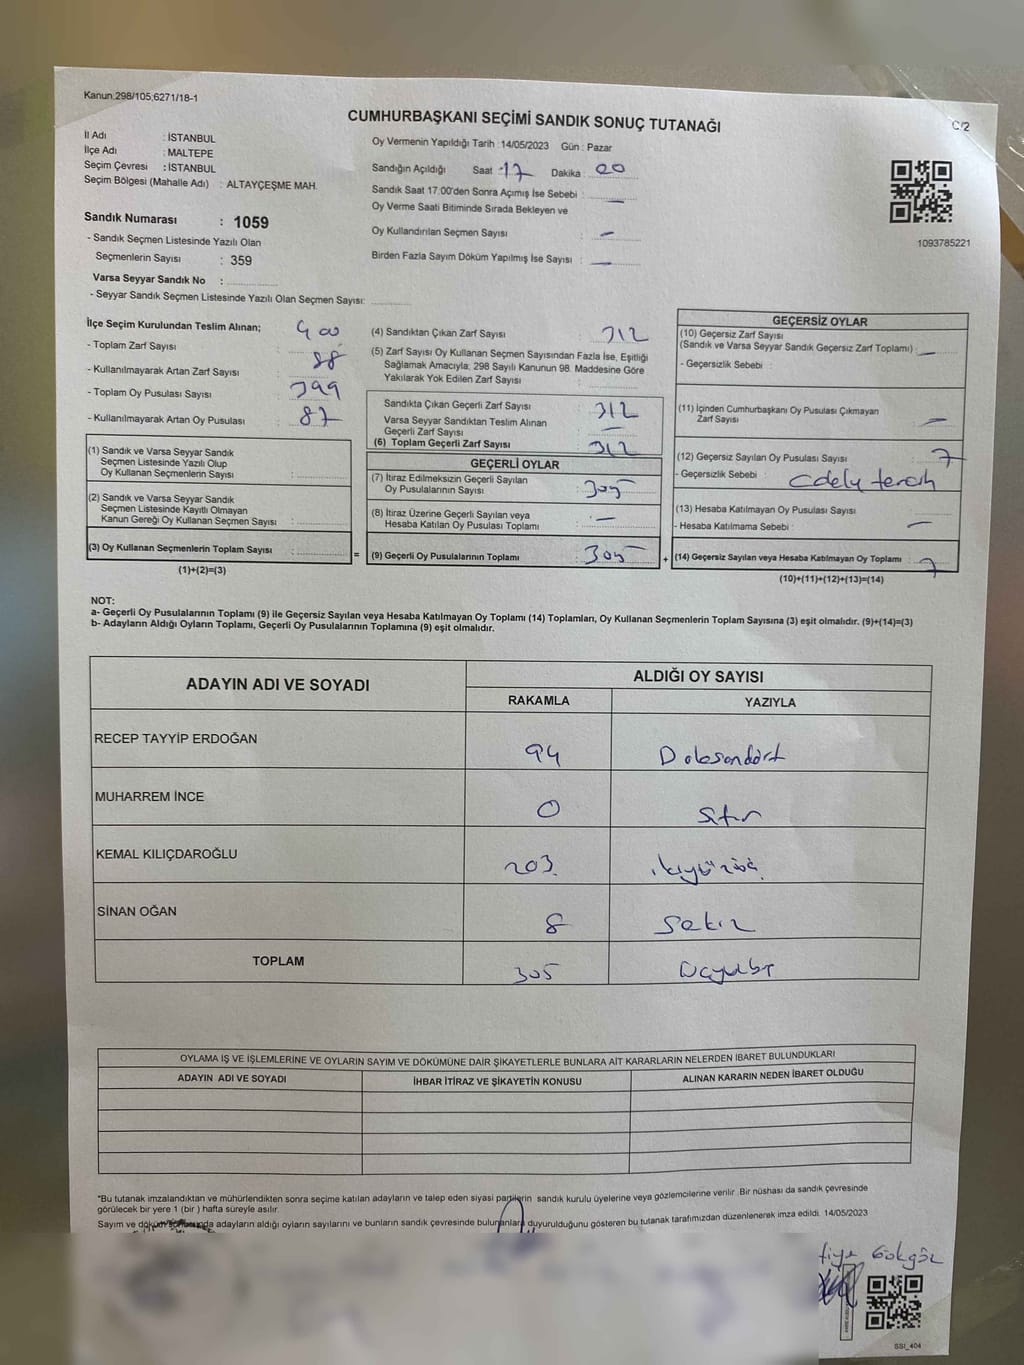 Kanun:298/105,6271/18-1
CUMHURBAŞKANI SEÇİMİ SANDIK SONUÇ TUTANAĞI
C/2
İl Adı : İSTANBUL
İlçe Adı : MALTEPE
Seçim Çevresi : İSTANBUL
Seçim Bölgesi (Mahalle Adı) : ALTAYÇEŞME MAH.
Sandık Numarası : 1059
- Sandık Seçmen Listesinde Yazılı Olan
Seçmenlerin Sayısı : 359
Varsa Seyyar Sandık No :
- Seyyar Sandık Seçmen Listesinde Yazılı Olan Seçmen Sayısı:
Oy Vermenin Yapıldığı Tarih : 14/05/2023 Gün : Pazar
Sandığın Açıldığı Saat : 17 Dakika : 00
Sandık Saat 17.00'den Sonra Açılmış İse Sebebi : —
Oy Verme Saati Bitiminde Sırada Bekleyen ve
Oy Kullandırılan Seçmen Sayısı : —
Birden Fazla Sayım Döküm Yapılmış İse Sayısı : —
1093785221
İlçe Seçim Kurulundan Teslim Alınan;
- Toplam Zarf Sayısı : 400
- Kullanılmayarak Artan Zarf Sayısı : 88
- Toplam Oy Pusulası Sayısı : 399
- Kullanılmayarak Artan Oy Pusulası : 87
(1) Sandık ve Varsa Seyyar Sandık
Seçmen Listesinde Yazılı Olup
Oy Kullanan Seçmenlerin Sayısı :
(2) Sandık ve Varsa Seyyar Sandık
Seçmen Listesinde Kayıtlı Olmayan
Kanun Gereği Oy Kullanan Seçmen Sayısı :
(3) Oy Kullanan Seçmenlerin Toplam Sayısı :
(1)+(2)=(3)
=
(4) Sandıktan Çıkan Zarf Sayısı : 312
(5) Zarf Sayısı Oy Kullanan Seçmen Sayısından Fazla İse, Eşitliği
Sağlamak Amacıyla; 298 Sayılı Kanunun 98. Maddesine Göre
Yakılarak Yok Edilen Zarf Sayısı :
Sandıkta Çıkan Geçerli Zarf Sayısı : 312
Varsa Seyyar Sandıktan Teslim Alınan
Geçerli Zarf Sayısı : —
(6) Toplam Geçerli Zarf Sayısı : 312
GEÇERLİ OYLAR
(7) İtiraz Edilmeksizin Geçerli Sayılan
Oy Pusulalarının Sayısı : 305
(8) İtiraz Üzerine Geçerli Sayılan veya
Hesaba Katılan Oy Pusulası Toplamı : —
(9) Geçerli Oy Pusulalarının Toplamı : 305
+
GEÇERSİZ OYLAR
(10) Geçersiz Zarf Sayısı
(Sandık ve Varsa Seyyar Sandık Geçersiz Zarf Toplamı) : —
- Geçersizlik Sebebi :
(11) İçinden Cumhurbaşkanı Oy Pusulası Çıkmayan
Zarf Sayısı : —
(12) Geçersiz Sayılan Oy Pusulası Sayısı : 7
- Geçersizlik Sebebi : tercih
(13) Hesaba Katılmayan Oy Pusulası Sayısı :
- Hesaba Katılmama Sebebi : —
(14) Geçersiz Sayılan veya Hesaba Katılmayan Oy Toplamı : 7
(10)+(11)+(12)+(13)=(14)
NOT:
a- Geçerli Oy Pusulalarının Toplamı (9) ile Geçersiz Sayılan veya Hesaba Katılmayan Oy Toplamı (14) Toplamları, Oy Kullanan Seçmenlerin Toplam Sayısına (3) eşit olmalıdır. (9)+(14)=(3)
b- Adayların Aldığı Oyların Toplamı, Geçerli Oy Pusulalarının Toplamına (9) eşit olmalıdır.
ADAYIN ADI VE SOYADI
ALDIĞI OY SAYISI
RAKAMLA YAZIYLA
RECEP TAYYİP ERDOĞAN 94 Doksandört
MUHARREM İNCE 0 Sıfır
KEMAL KILIÇDAROĞLU 203 ikiyüzüç
SİNAN OĞAN 8 Sekiz
TOPLAM 305 Üçyüzbeş
OYLAMA İŞ VE İŞLEMLERİNE VE OYLARIN SAYIM VE DÖKÜMÜNE DAİR ŞİKAYETLERLE BUNLARA AİT KARARLARIN NELERDEN İBARET BULUNDUKLARI
ADAYIN ADI VE SOYADI İHBAR İTİRAZ VE ŞİKAYETİN KONUSU ALINAN KARARIN NEDEN İBARET OLDUĞU
*Bu tutanak imzalandıktan ve mühürlendikten sonra seçime katılan adayların ve talep eden siyasi partilerin sandık kurulu üyelerine veya gözlemcilerine verilir .Bir nüshası da sandık çevresinde
görülecek bir yere 1 (bir ) hafta süreyle asılır.
Sayım ve döküm sonucunda adayların aldığı oyların sayılarını ve bunların sandık çevresinde bulunanlara duyurulduğunu gösteren bu tutanak tarafımızdan düzenlenerek imza edildi. 14/05/2023
Gökgöz
SSI_404